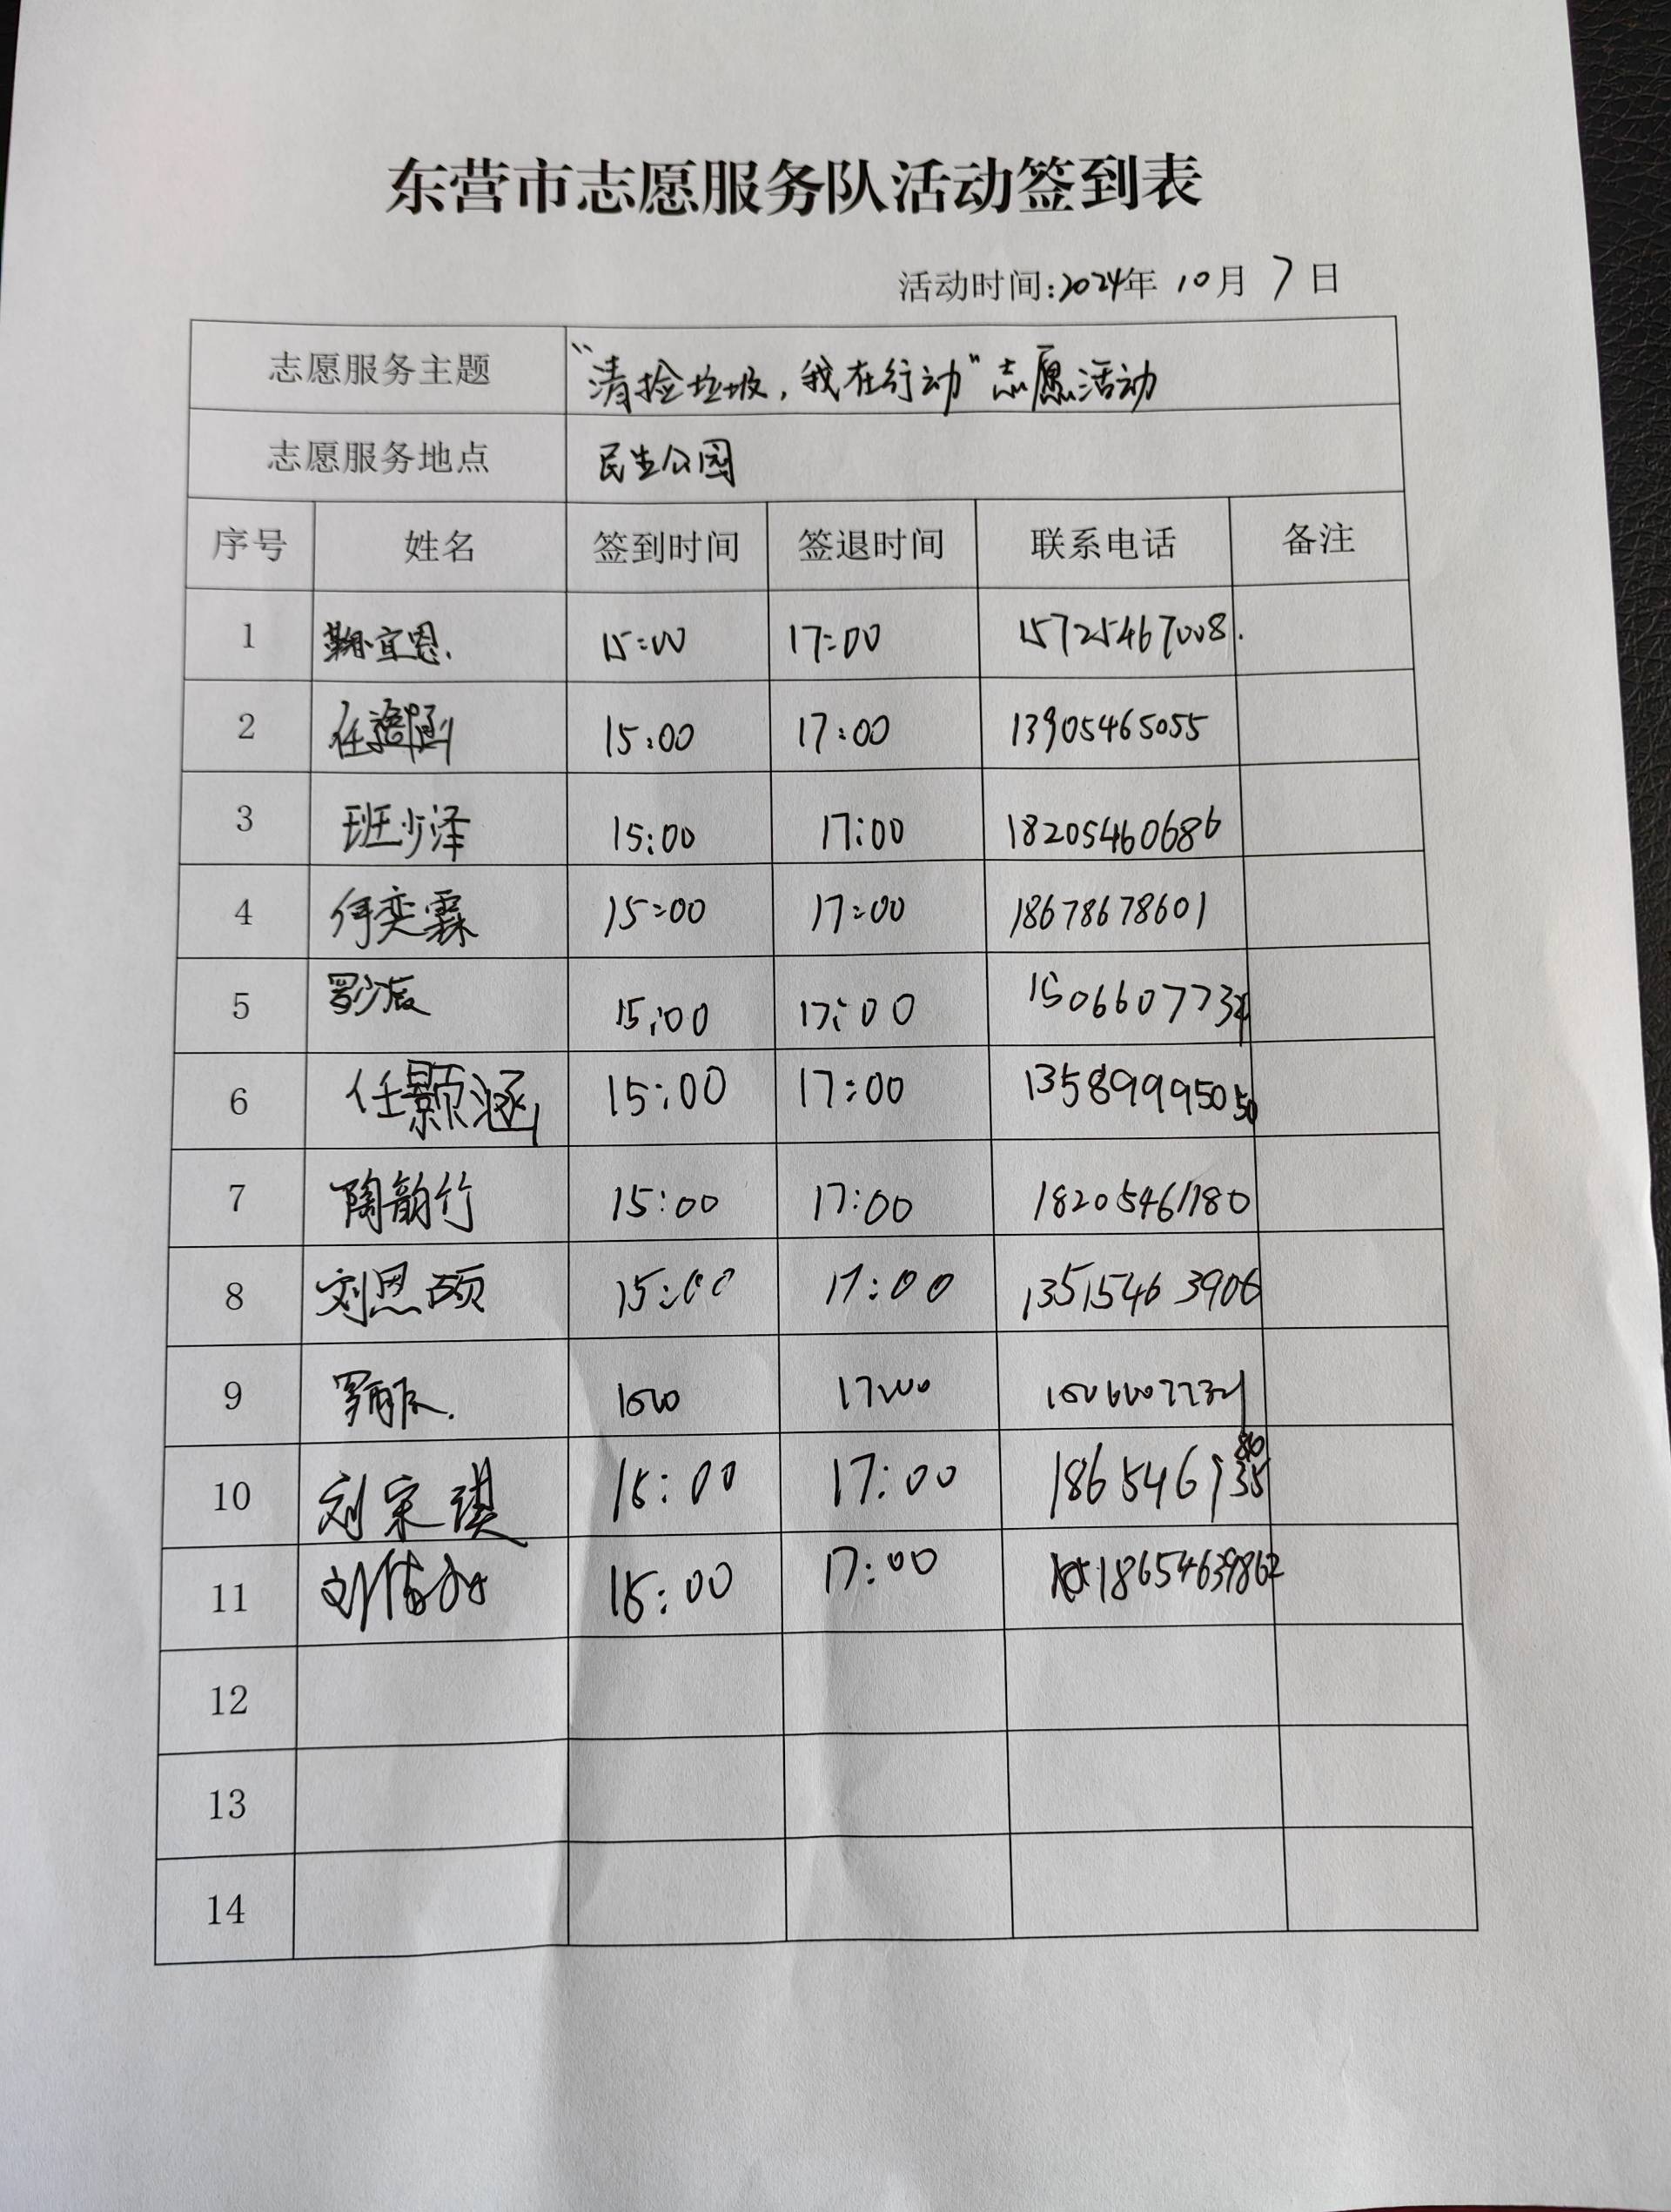 东营市志愿服务队活动签到表
活动时间:2024年 10月 7日
志愿服务主题 “清捡垃圾,我在行动”志愿活动
志愿服务地点 民生公园
序号 姓名 签到时间 签退时间 联系电话 备注
1 宜恩. 15:00 17:00 15725467008.
2 任涵 15:00 17:00 13905465055
3 班少泽 15:00 17:00 18205460686
4 何奕霖 15:00 17:00 18678678601
5 15:00 17:00
6 任颢涵 15:00 17:00 13589995050
7 陶韵竹 15:00 17:00 18205461180
8 刘恩硕 15:00 17:00 13515463906
9 17:00
10 刘宗琪 15:00 17:00
11 刘 15:00 17:00 18654639862
12
13
14